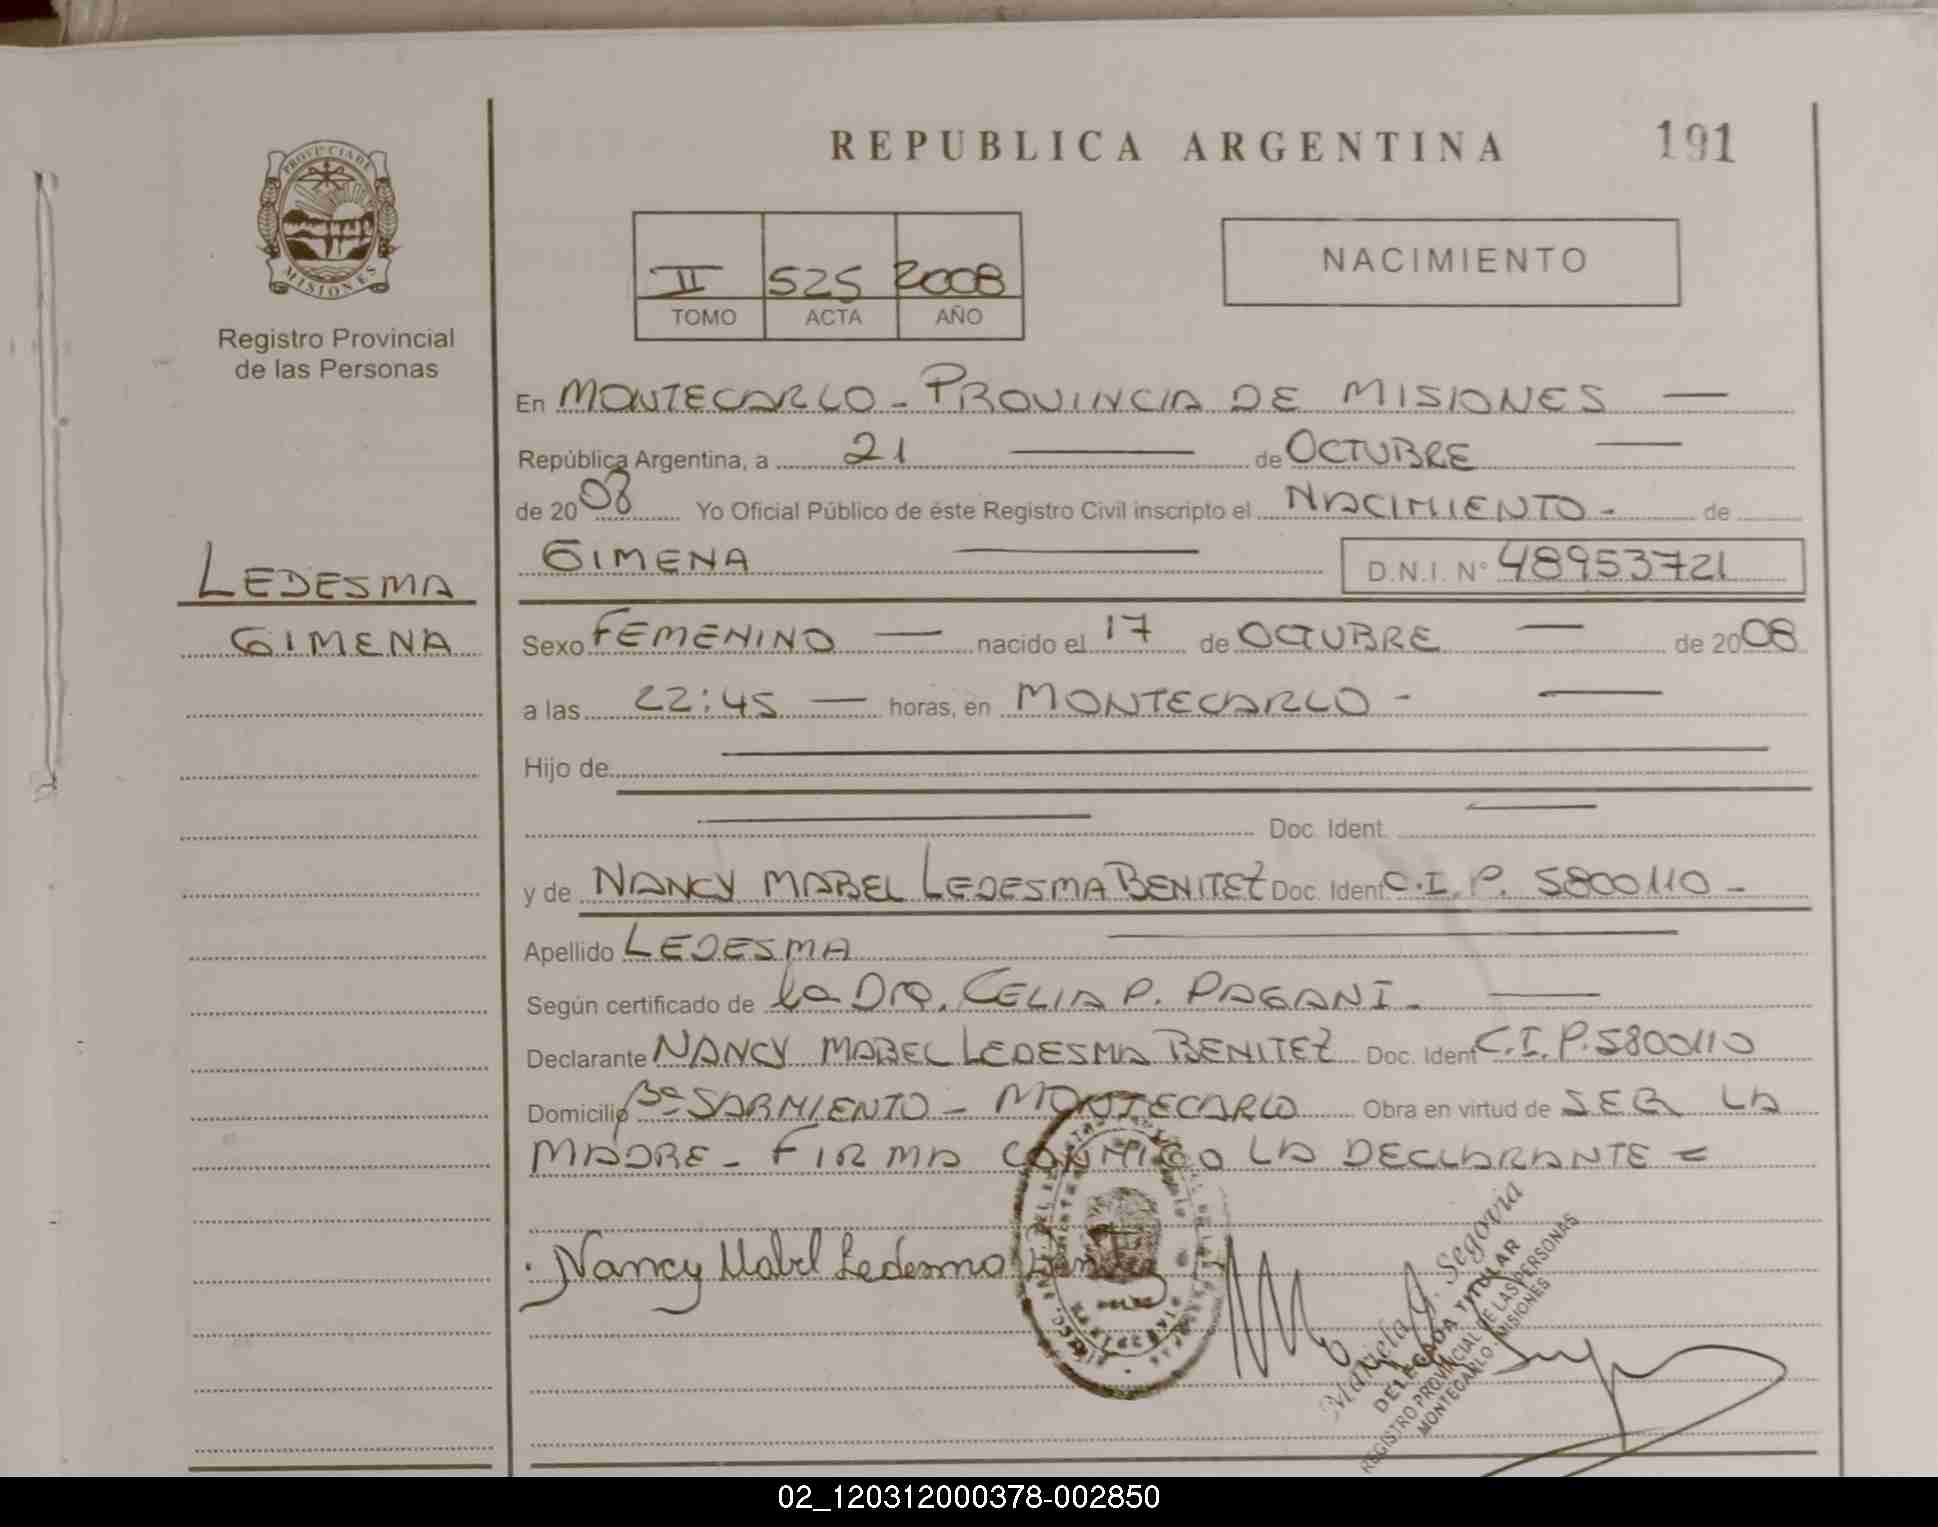 REPUBLICA ARGENTINA 191
PROVINCIA DE
MISIONES
Registro Provincial
de las Personas
II 525 2008
TOMO ACTA AÑO
NACIMIENTO
En MONTECARLO - PROVINCIA DE MISIONES
República Argentina, a 21 de OCTUBRE
de 2008 Yo Oficial Público de éste Registro Civil inscripto el NACIMIENTO - de
GIMENA D.N.I. Nº 48953721
LEDESMA
GIMENA
Sexo FEMENINO nacido el 17 de OCTUBRE de 2008
a las 22:45 horas, en MONTECARLO -
Hijo de
Doc. Ident.
y de NANCY MABEL LEDESMA BENITEZ Doc. Ident C.I. P. 5800110 -
Apellido LEDESMA
Según certificado de la Dra. CELIA P. PAGANI -
Declarante NANCY MABEL LEDESMA BENITEZ Doc. Ident C.I. P. 5800110
Domicilio Bº SARMIENTO - MONTECARLO Obra en virtud de SER LA
MADRE - FIRMA CONMIGO LA DECLARANTE =
Nancy Mabel Ledesma
Mariela G. Segovia
DELEGADA TITULAR
REGISTRO PROVINCIAL DE LAS PERSONAS
MONTECARLO - MISIONES
02_120312000378-002850